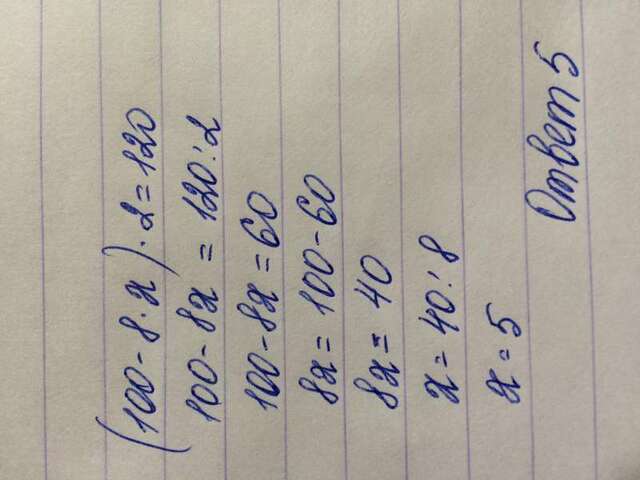 (100-8·x)·2=120
100-8x=120:2
100-8x=60
8x=100-60
8x=40
x=40:8
x=5
Ответ 5